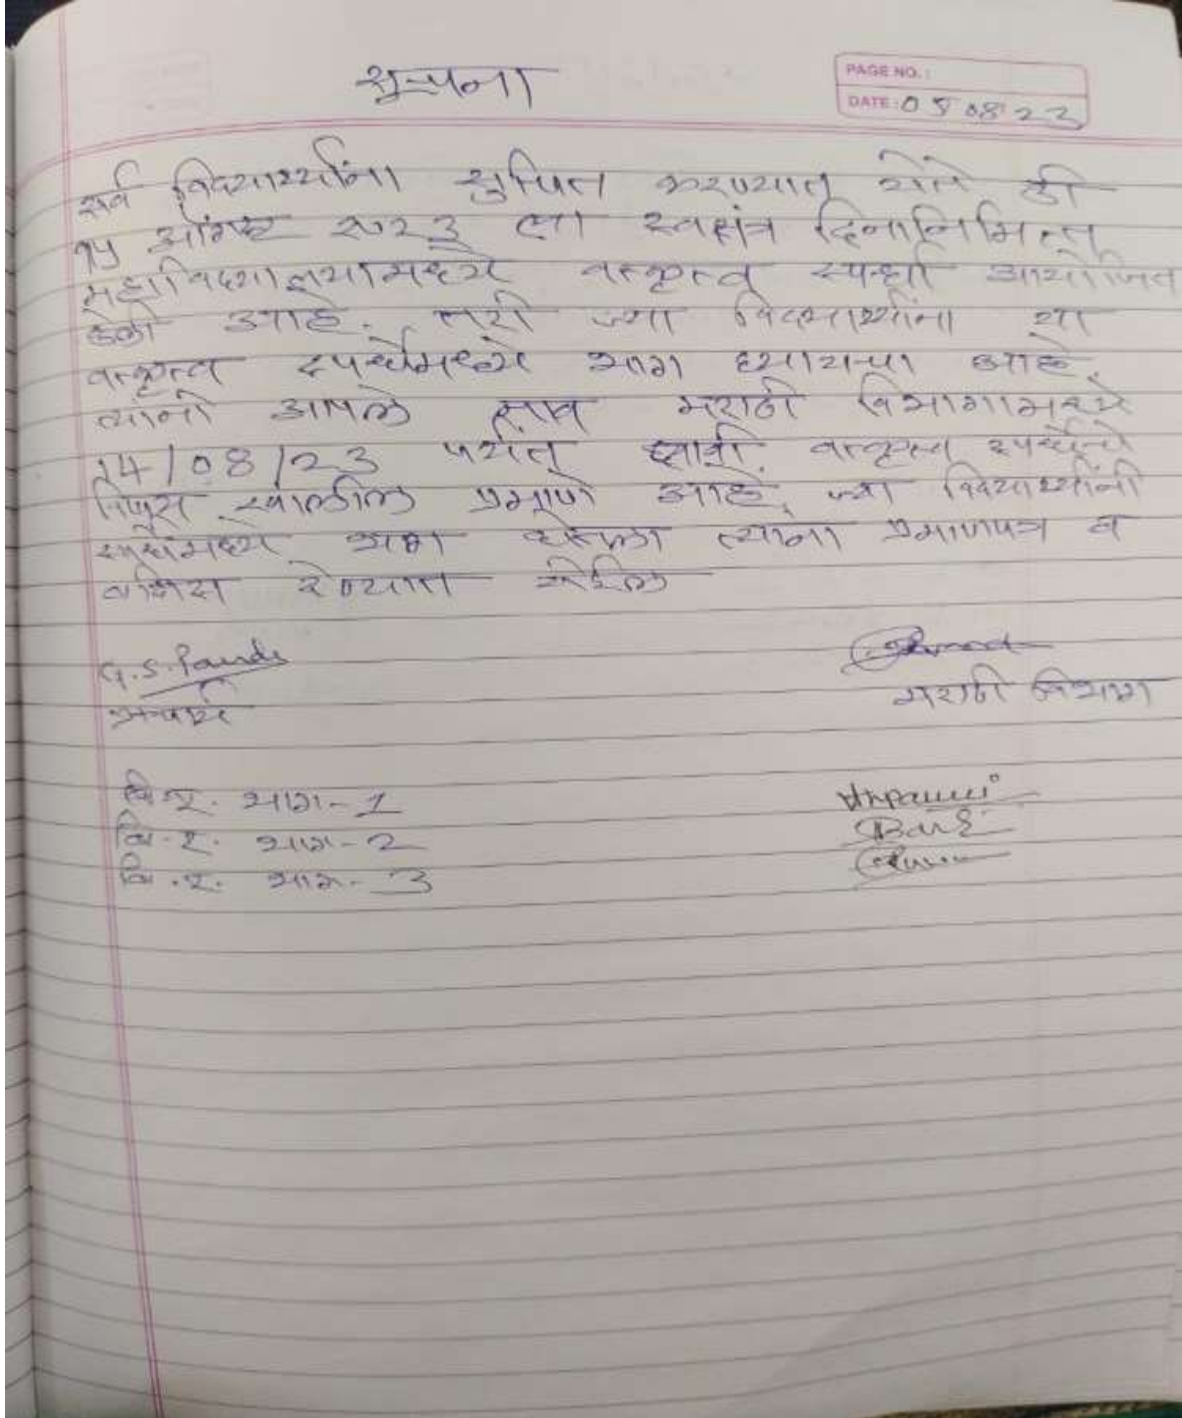 सुचना
PAGE NO.:
DATE: 05 08 23
सर्व विद्यार्थ्यांना सुचित करण्यात येते की
१५ ऑगस्ट २०२३ ला स्वतंत्र दिनानिमित्त
महाविद्यालयामध्ये वक्तृत्व स्पर्धा आयोजित
केली आहे. तरी ज्या विद्यार्थ्यांना या
वक्तृत्व स्पर्धेमध्ये भाग घ्यायचा आहे.
त्यांनी आपले नाव मराठी विभागामध्ये
14/08/23 पर्यंत द्यावी. वक्तृत्व स्पर्धेचे
विषय खालील प्रमाणे आहे, ज्या विद्यार्थ्यांनी
स्पर्धेमध्ये भाग घेतला त्यांना प्रमाणपत्र व
बक्षिस देण्यात येईल
G.S.
प्राचार्य
मराठी विभाग
बि.ए. भाग-1
बि.ए. भाग-2
बि.ए. भाग-3